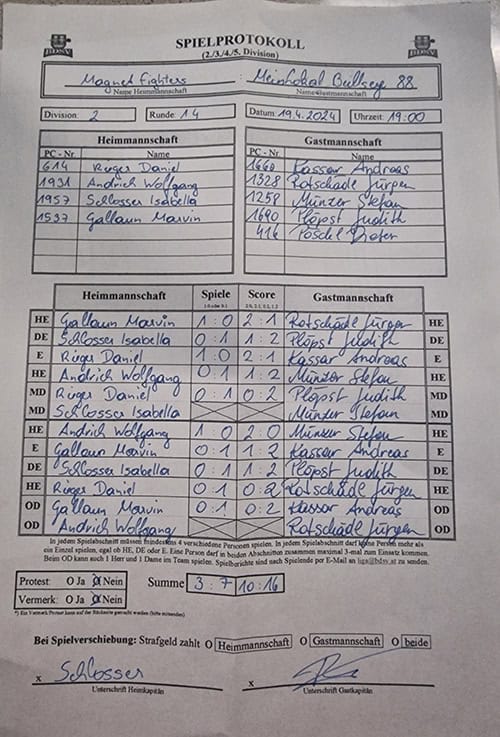 SPIELPROTOKOLL
(2./3./4./5. Division)
Magnet Fighters : Meinhokal Bullseye 88
Name Heimmannschaft Name Gastmannschaft
Division: 2 Runde: 14 Datum: 19.4.2024 Uhrzeit: 19:00
Heimmannschaft Gastmannschaft
PC - Nr. Name PC - Nr. Name
614 Rieger Daniel 1660 Kassar Andreas
1931 Andrich Wolfgang 1328 Rotschädl Jürgen
1957 Schlosser Isabella 1258 Münzer Stefan
1537 Gallaun Marvin 1690 Plöpst Judith
416 Pöschl Dieter
Heimmannschaft Spiele Score Gastmannschaft
1:0 oder 0:1 2:0, 2:1, 0:2, 1:2
HE Gallaun Marvin 1:0 2:1 Rotschädl Jürgen HE
DE Schlosser Isabella 0:1 1:2 Plöpst Judith DE
E Rieger Daniel 1:0 2:1 Kassar Andreas E
HE Andrich Wolfgang 0:1 1:2 Münzer Stefan HE
MD Rieger Daniel 0:1 0:2 Plöpst Judith MD
MD Schlosser Isabella Münzer Stefan MD
HE Andrich Wolfgang 1:0 2:0 Münzer Stefan HE
E Gallaun Marvin 0:1 1:2 Kassar Andreas E
DE Schlosser Isabella 0:1 1:2 Plöpst Judith DE
HE Rieger Daniel 0:1 0:2 Rotschädl Jürgen HE
OD Gallaun Marvin 0:1 0:2 Kassar Andreas OD
OD Andrich Wolfgang Rotschädl Jürgen OD
In jedem Spielabschnitt müssen mindestens 4 verschiedene Personen spielen. In jedem Spielabschnitt darf keine Person mehr als
ein Einzel spielen, egal ob HE, DE oder E. Eine Person darf in beiden Abschnitten zusammen maximal 3-mal zum Einsatz kommen.
Beim OD kann auch 1 Herr und 1 Dame im Team spielen. Spielberichte sind nach Spielende per E-Mail an liga@bdsv.at zu senden.
Protest: O Ja O Nein Summe 3:7 10:16
Vermerk: O Ja O Nein
*) Ein Vermerk/Protest kann auf der Rückseite gemacht werden (bitte ankreuzen)
Bei Spielverschiebung: Strafgeld zahlt O Heimmannschaft O Gastmannschaft O beide
x Schlosser x
Unterschrift Heimkapitän Unterschrift Gastkapitän